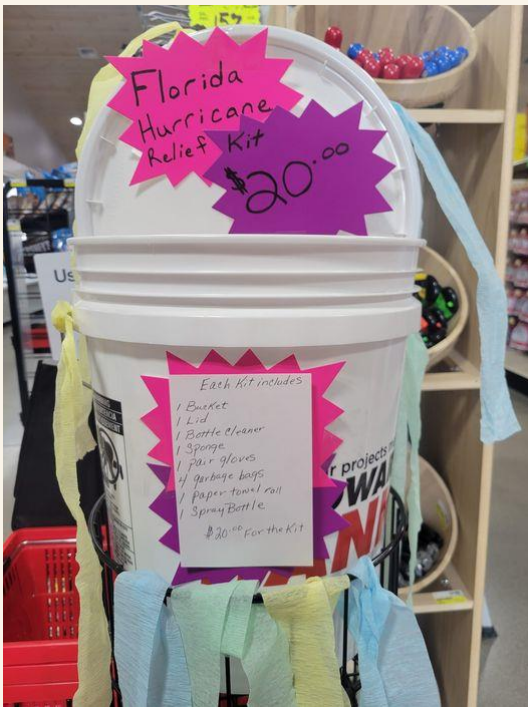 157
Florida
Hurricane
Relief Kit
$20.00
Us
Each Kit includes
1 Bucket
1 Lid
1 Bottle Cleaner
1 Sponge
1 pair gloves
4 garbage bags
1 paper towel roll
1 Spray Bottle
$20.00 For the Kit
r projects